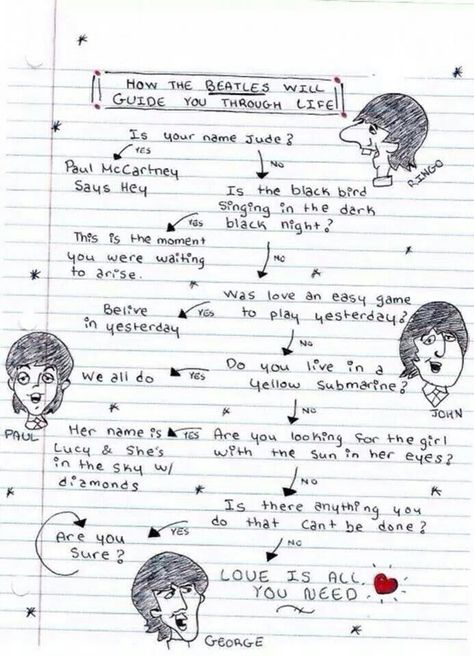 HOW THE BEATLES WILL
GUIDE YOU THROUGH LIFE
Is your name Jude?
YES
NO
RINGO
Paul McCartney
Says Hey
Is the black bird
singing in the dark
black night?
YES
NO
This is the moment
you were waiting
to arise.
Was love an easy game
to play yesterday?
YES
NO
Belive
in yesterday
JOHN
Do you live in a
yellow submarine?
YES
NO
We all do
PAUL
Are you looking for the girl
with the sun in her eyes?
YES
NO
Her name is
Lucy & She's
in the sky w/
diamonds
Is there anything you
do that cant be done?
YES
NO
Are you
Sure?
LOVE IS ALL
YOU NEED
GEORGE